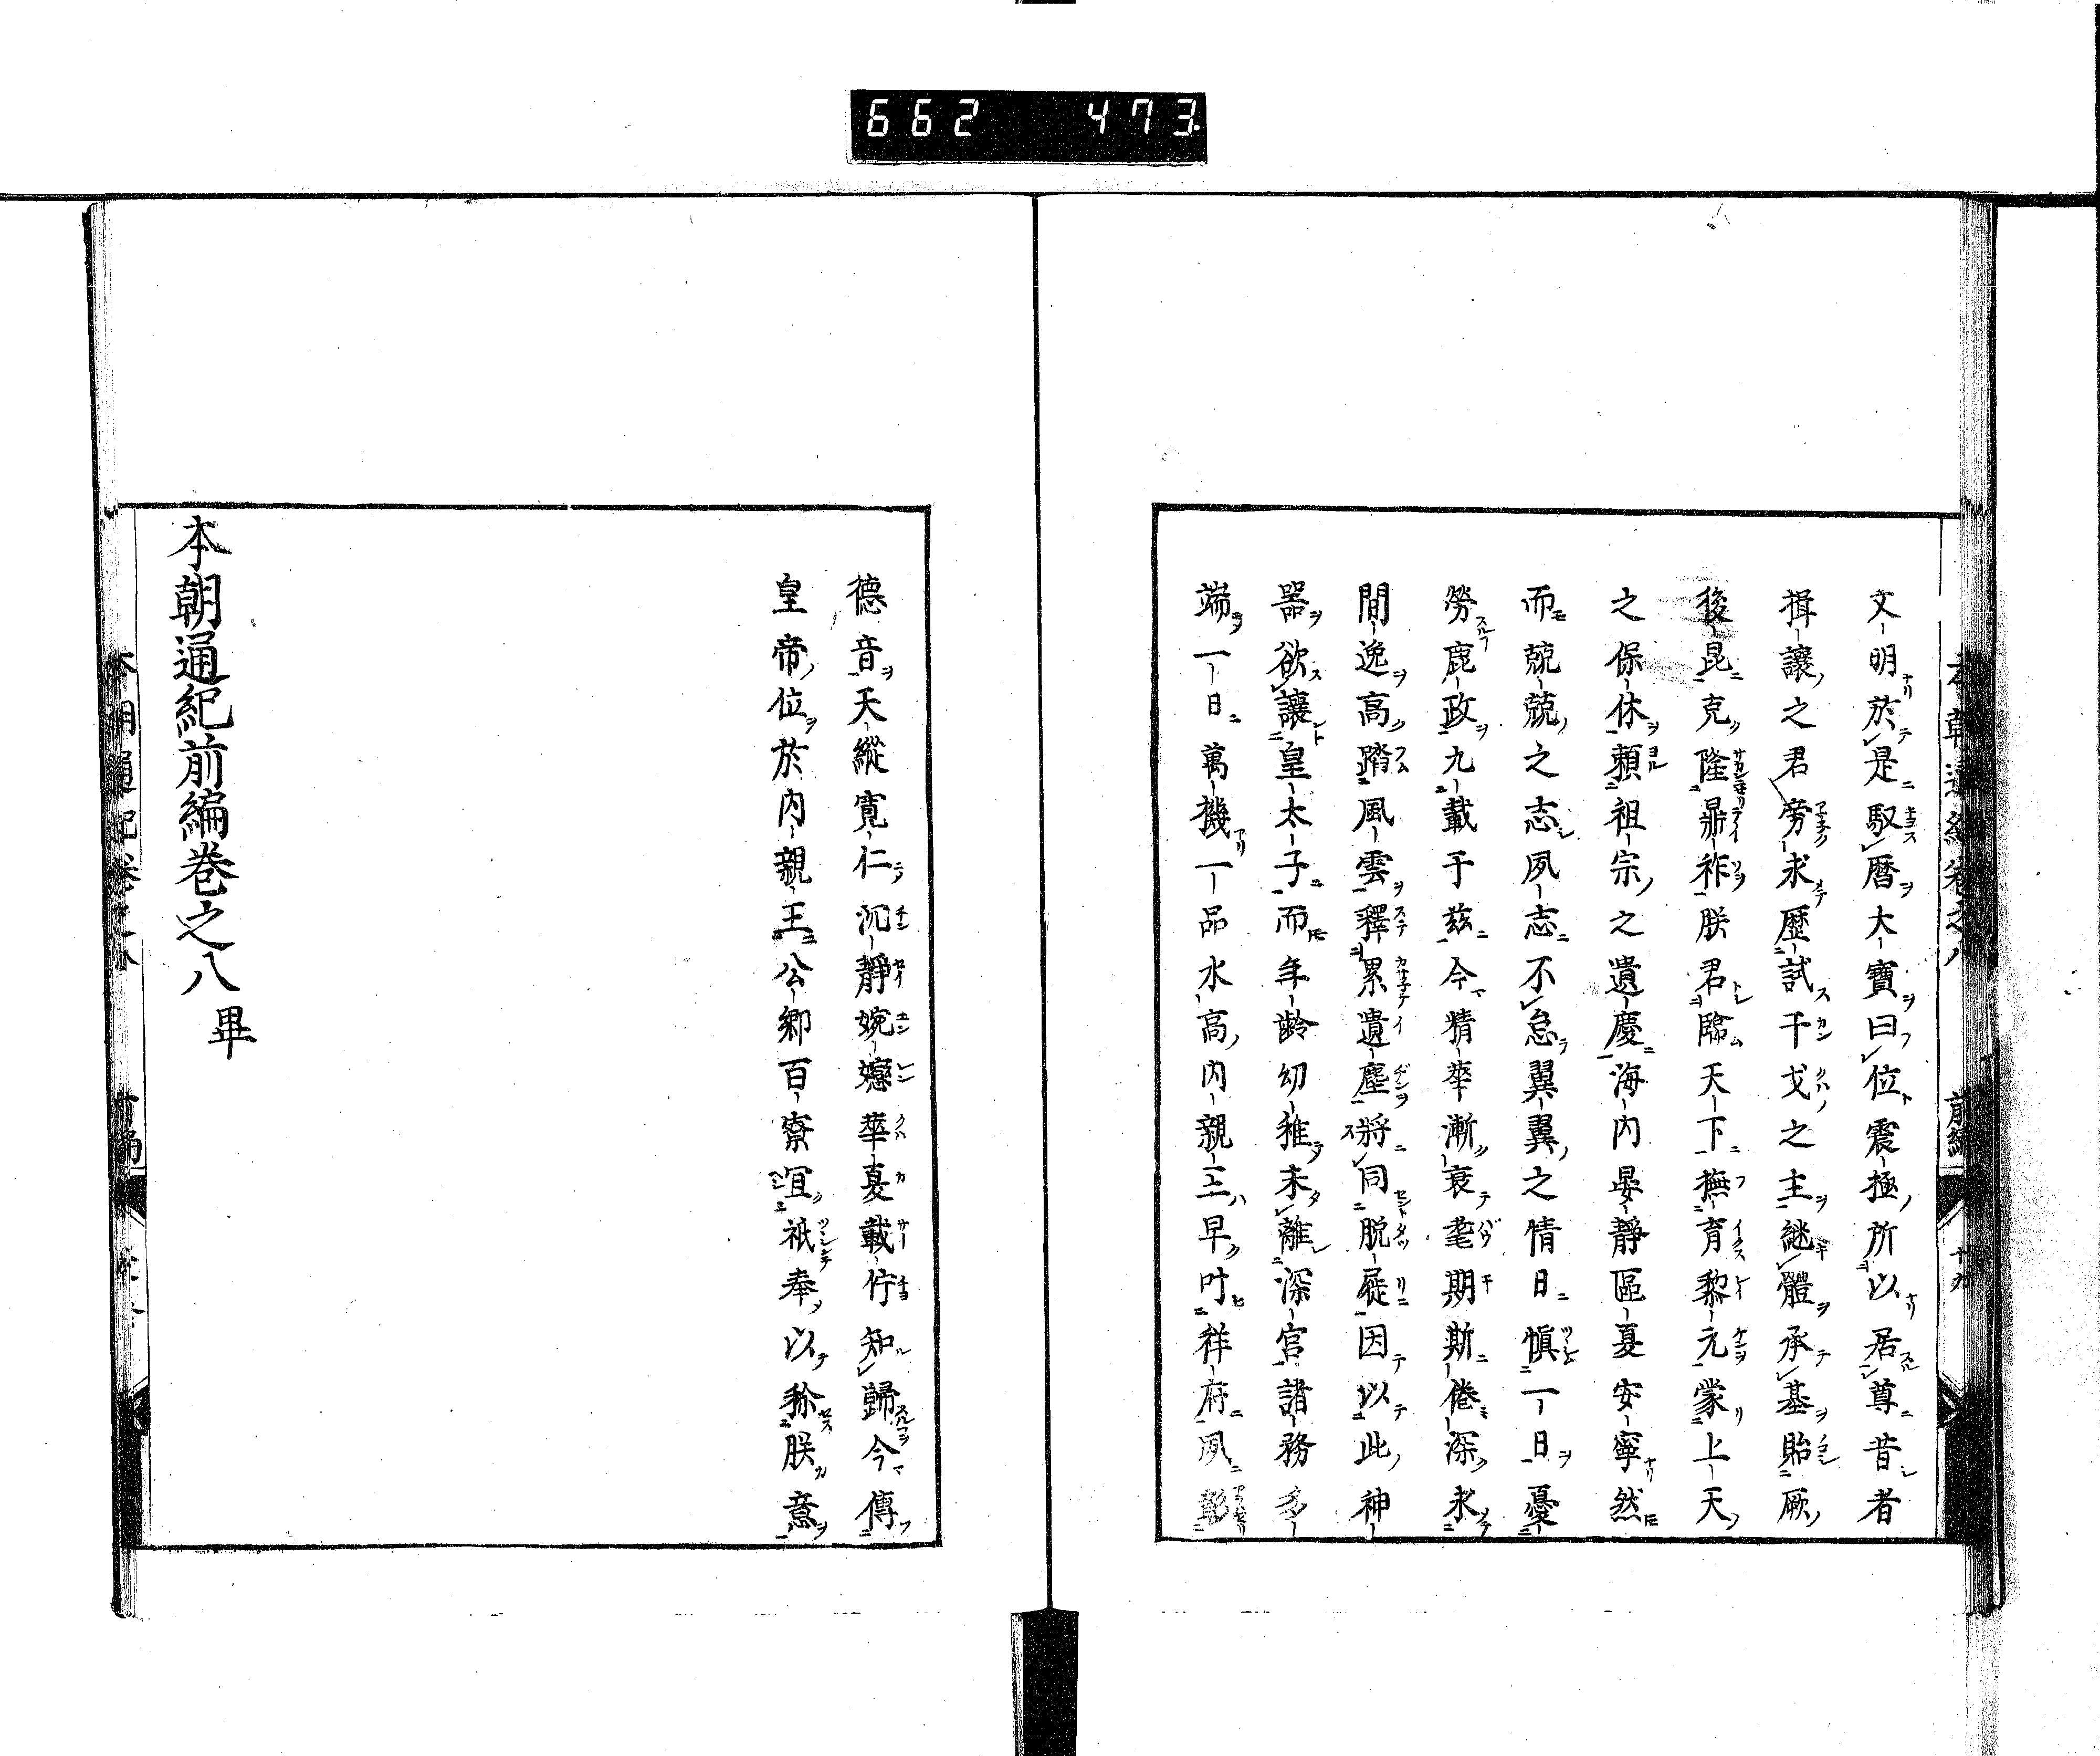 662 473
文明於是馭暦大寶曰位震極所以居尊昔者
揖讓之君旁求歷試干戈之主継體承基貽厥
後昆克隆鼎祚朕君臨天下撫育黎元蒙上天
之保休頼祖宗之遺慶海内晏靜區夏安寧然
而兢兢之志夙志不怠翼翼之情日愼一日憂
勞庻政九載于茲今精華漸衰耄期斯倦深求
閒逸高踏風雲釋累遺塵將同脱屣因以此神
器欲讓皇太子而年齢幼稚未離深宮諸務多
端一日萬機一品氷高内親王早叶祥府夙彰
德音天縱寛仁沉靜婉孌華夏載佇知歸今傳
皇帝位於内親王公卿百寮宜祇奉以称朕意
本朝通紀前編巻之八 畢